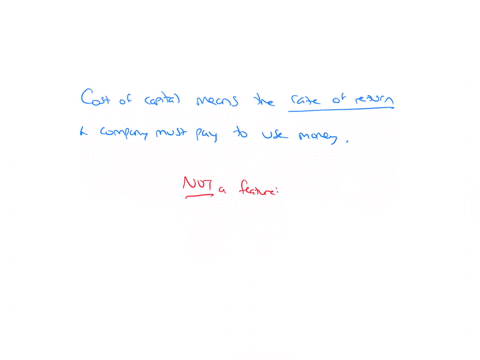 Cost of capital means the rate of return
a company must pay to use money.
NOT a feature: